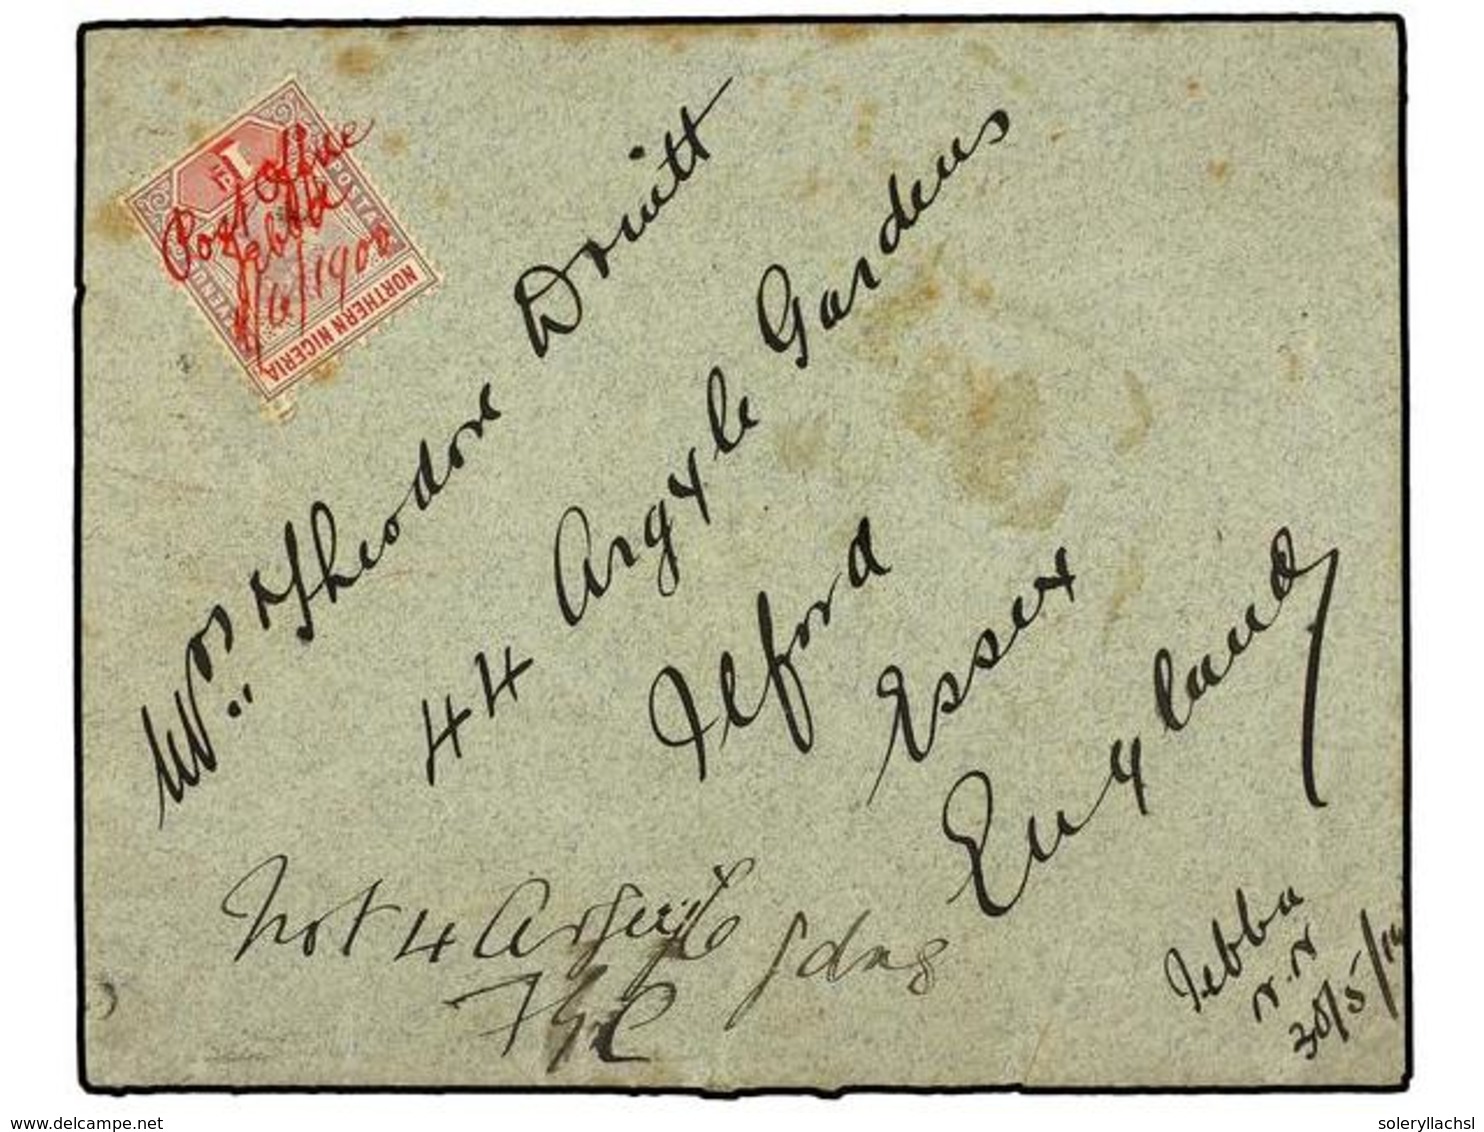 1
POSTAGE
REVENUE
NORTHERN NIGERIA
Post Office
Jebba
1/6/1900
Theodore Druitt
44 Argyle Gardens
Ilford
Essex
England
Not 4 Argyle gdns
Jebba
N.N
30/5/
delcampe.net
soleryllachsl